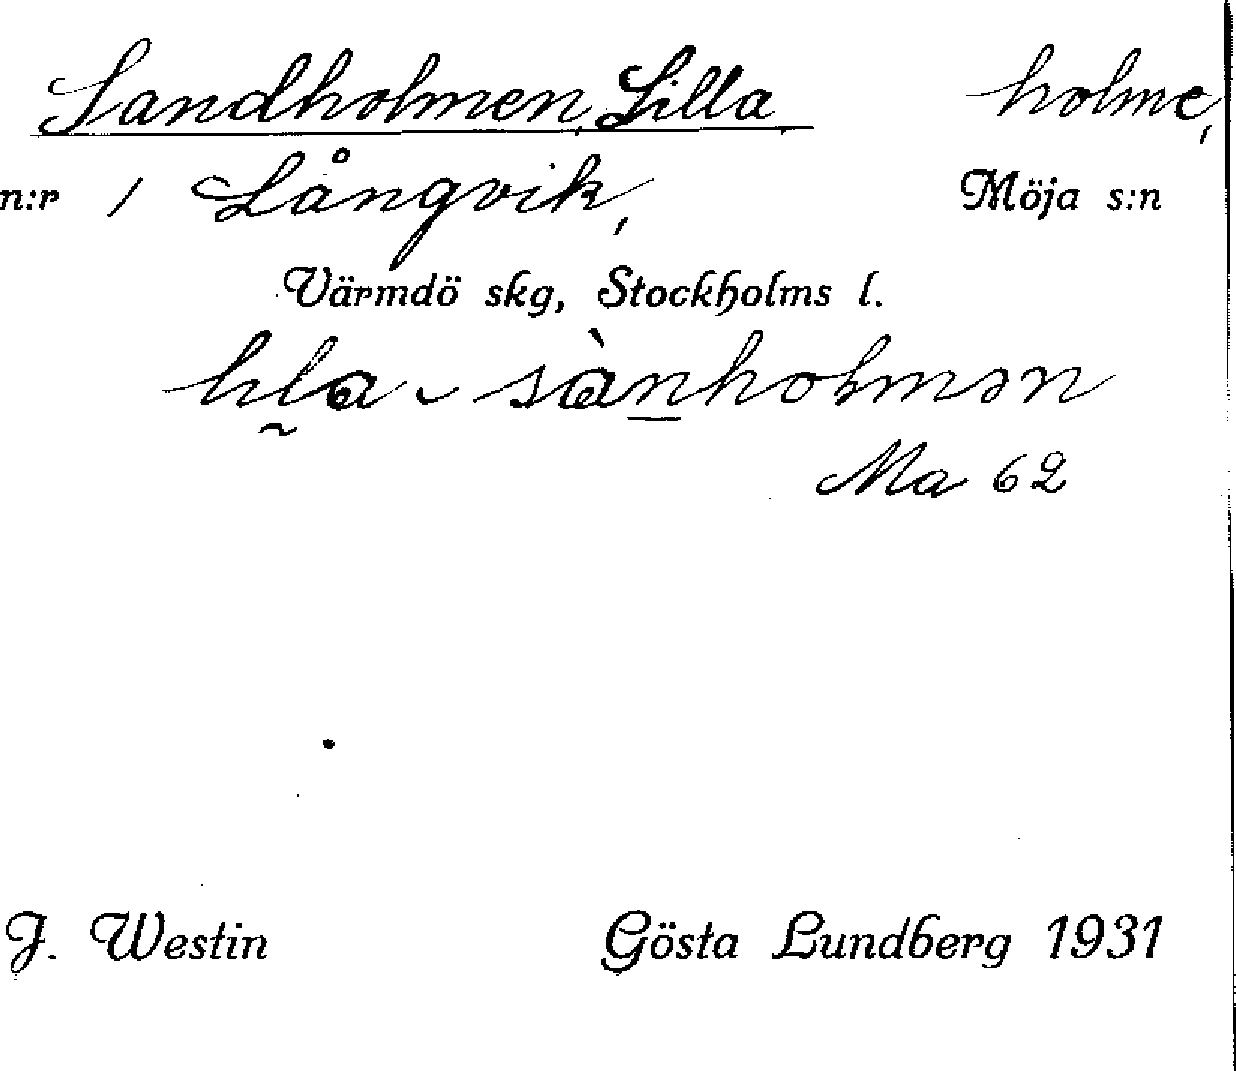 Sandholmen, Lilla, holme,
n:r 1 Långvik, Möja s:n
Värmdö skg, Stockholms l.
sànholmən
Ma 62
J. Westin Gösta Lundberg 1931